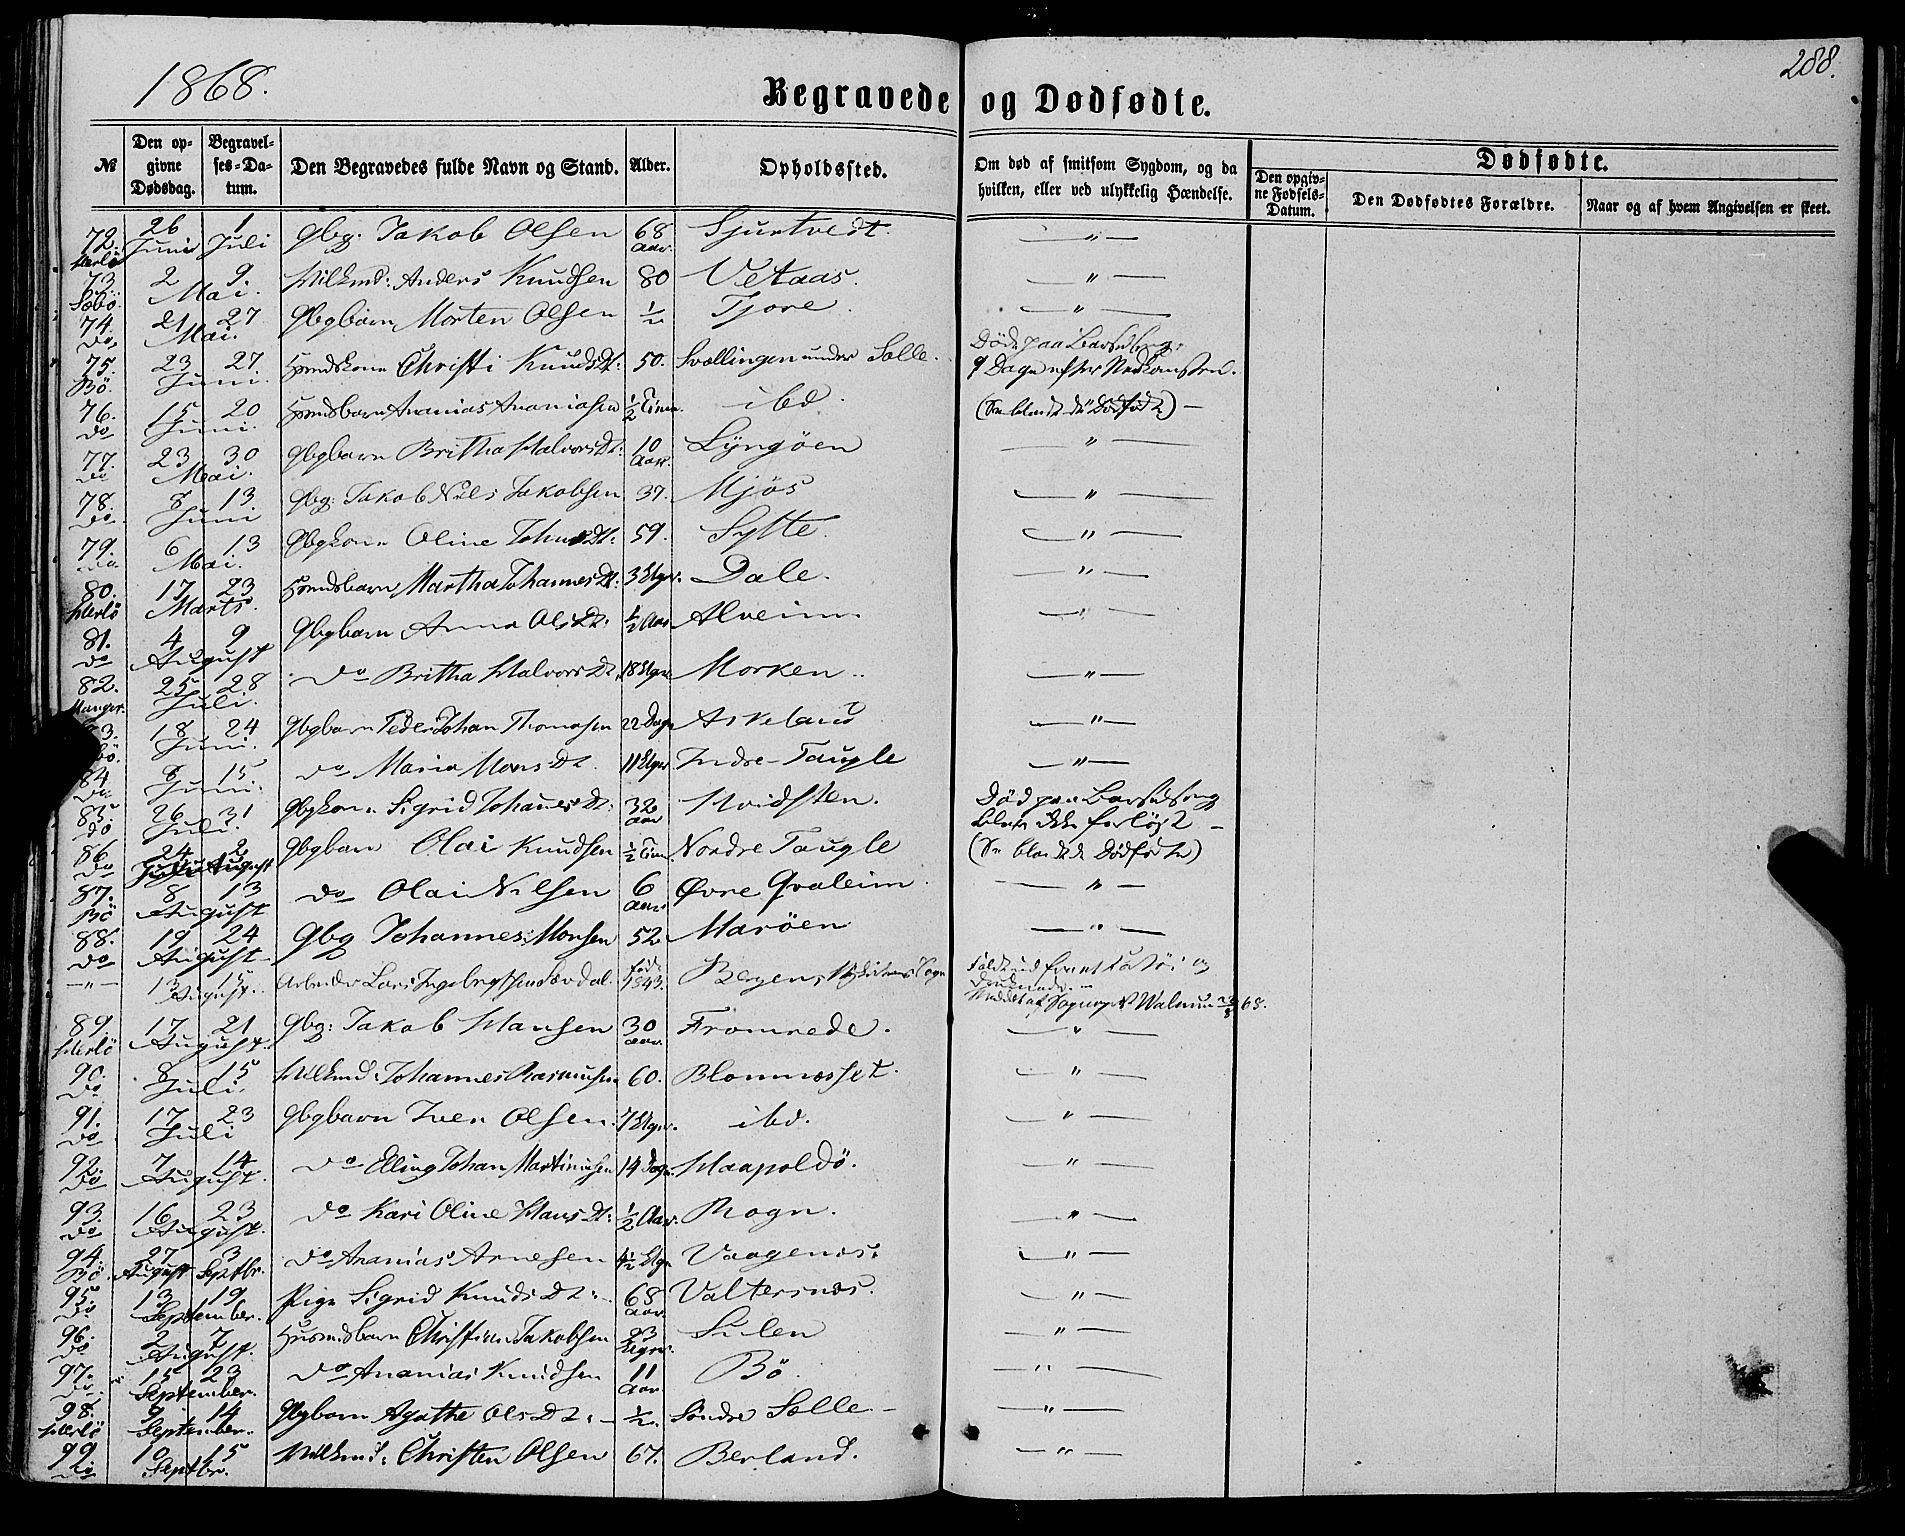 1868.
288.
Begravede og Dødfødte.
№
Den opgivne Dødsdag.
Begravelses-Datum.
Den Begravedes fulde Navn og Stand.
Alder.
Opholdssted.
Om død af smitsom Sygdom, og da hvilken, eller ved ulykkelig Hændelse.
Dødfødte.
Den opgivne Fødsels-Datum.
Den Dødfødtes Forældre.
Naar og af hvem Angivelsen er skeet.
72. Herlö 26 Juni 1 Juli Gbg: Jakob Olsen 68 Aar. Sjurtvedt. — " —
73. Sæbö. 2 9 Mai. Vilkmd: Anders Knudsen 80 Vetaas. — " —
74. Do 21 27 Mai. Gbgbarn Morten Olsen ½ Tjore. — " —
75. Bö. 23 27. Juni. Christi KnudsDt: 50. Svællingen under Solle. Døde paa Barselseng,
9 Dage efter Nedkomsten.
76. Do 15 20 Juni. Ananias Ananiasen ½ Time. ibd. (Se blandt de Dødfødte) —
77. Do 23 30 Mai. Gbgbarn Britha HalvorsDt: 10 Aar. Lyngöen — " —
78. Do 8 13 Juni Gbg: Jakob Nils Jakobsen 37. Mjös — " —
79. Do 6 13 Mai. Gbgkone Oline JohnsDt: 59. Sylte. — " —
80. Herlö 17 23 Marts. Martha JohannesDt: 3 Uger. Dale. — " —
81. Do 4 9 August Gbgbarn Anna OlsDt: ½ Aar Alveim — " —
82. Manger. 25 28 Juli. Do Britha HalvorsDt. 18 Uger Morken.. — " —
18 24 Juni. Gbgbarn Peder Johan Thomasen 22 Dage Askeland — " —
84. Do 8 15. Juni. Do Maria MonsDt. 11 Uger Indre-Taugle — " —
85. Do 26 31 Juli. Gbgkone Sigrid JohannesDt: 32 Aar Hvidsten. Död paa Barselseng
Blev ikke forløst —
86. Do 24 Juli 2 August Gbgbarn Olai Knudsen ½ Time. Nordre Taugle (Se blandt de Dødfødte)
87. Bö 8 13 August Do Olai Nilsen 6 Aar Øvre Qvaleim. — " —
88. Do 19 24 August Gbg Johannes Monsen 52 Maröen — " —
— " — 13 15 August. Arbeider Lars Ingebrigtsen född 1843. Bergens Sogn
druknede.
68.
89. Herlö 17 21 August. Gbg: Jakob Hansen 30 Aar Fromrede. — " —
90. Do 8 15 Juli. Vilkmd: Johannes Rasmusen 60. Blommesset. — " —
91. Do 17 23 Juli Gbgbarn Iver Olsen. 7 Uger. ibd. — " —
92. Do 7 14 August. Do Elling Johan Martinusen 14 Dage. — " —
93. Do 16 23 August. Do Kari Oline HansDt: ½ Aar. Rogn. — " —
94. Bö. 27 August 3 Septbr. Do Ananias Arnesen 4½ Uger Vaagenes. — " —
95. Do 13 19 September. Pige Sigrid KnudsDt: 68 Aar Valtersnæs. — " —
96. Do 2 7 August. Husmdsbarn Christian Jakobsen 23 Uger. Sulen — " —
97. Do. 15 23 September. Do Ananias Knudsen 11 Aar Bö. — " —
98. Herlö 9 14 September. Gbgbarn Agathe OlsDt: ½. Söndre Solle. — " —
99 Do 10 15 Septbr. Vilkmd: Christen Olsen 67. Berland. — " —